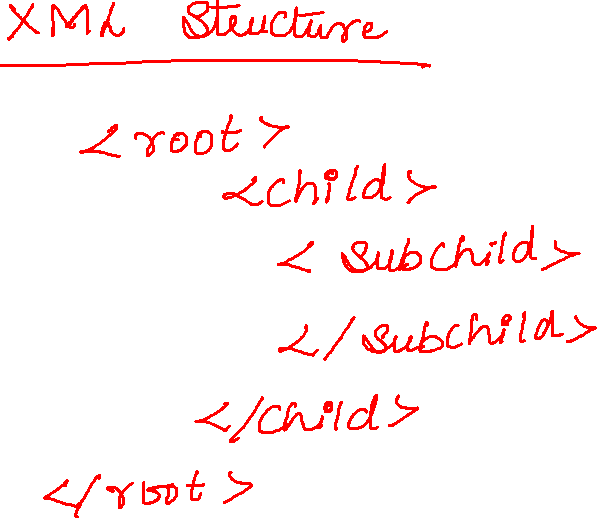 XML Structure
<root>
<child>
<subchild>
</subchild>
</child>
</root>